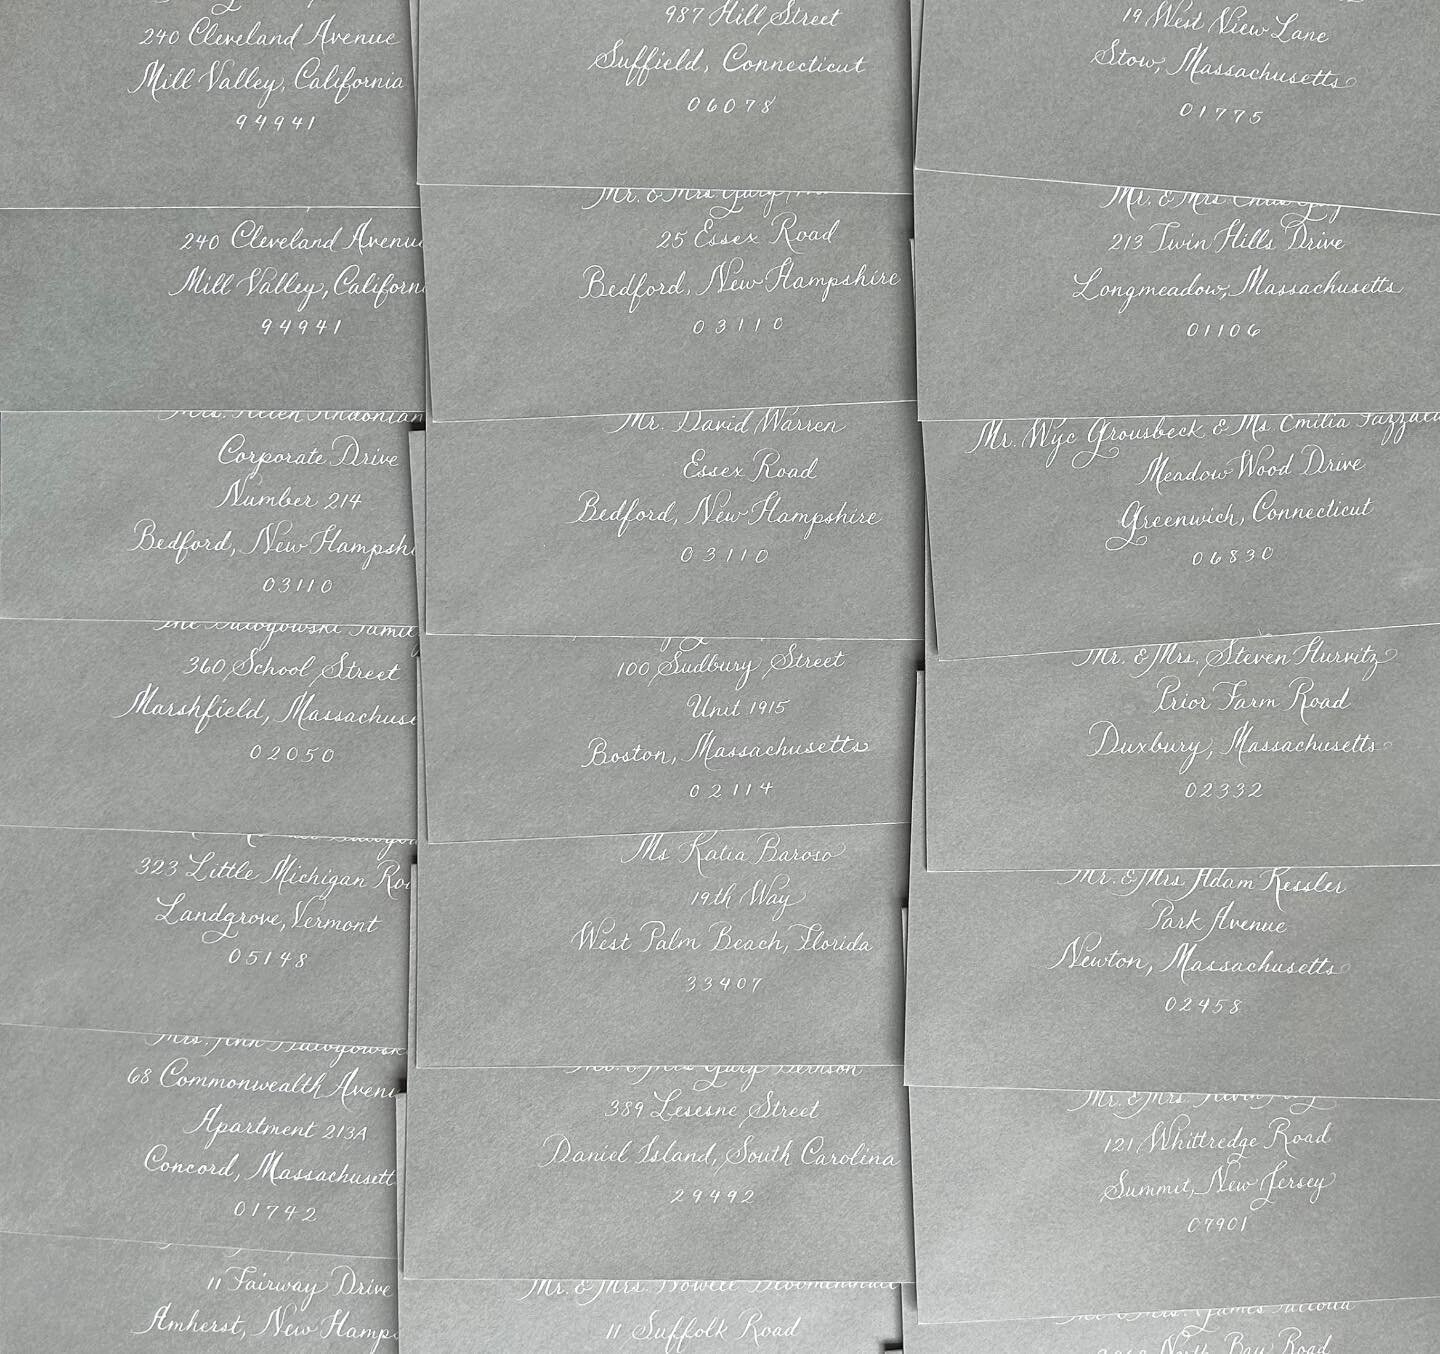 240 Cleveland Avenue
Mill Valley, California
94941
240 Cleveland Avenu
Mill Valley, Californ
94941
Mrs. Helen Andonian
Corporate Drive
Number 214
Bedford, New Hampshi
03110
The
360 School Street
Marshfield, Massachuse
02050
323 Little Michigan Roa
Landgrove, Vermont
05148
Mrs. Jenn
68 Commonwealth Avenu
Apartment 213A
Concord, Massachusett
01742
11 Fairway Drive
Amherst, New Hamp
987 Hill Street
Suffield, Connecticut
06078
Mr. & Mrs Gary
25 Essex Road
Bedford, New Hampshire
03110
Mr. David Warren
Essex Road
Bedford, New Hampshire
03110
100 Sudbury Street
Unit 1915
Boston, Massachusetts
02114
Ms Katia Baroso
19th Way
West Palm Beach, Florida
33407
& Mrs Gary
389 Lesesne Street
Daniel Island, South Carolina
29492
Mr. & Mrs. Howell
11 Suffolk Road
19 West View Lane
Stow, Massachusetts
01775
Mr. & Mrs Chris
213 Twin Hills Drive
Longmeadow, Massachusetts
01106
Mr. Wyc Grousbeck & Ms. Emilia Fazzala
Meadow Wood Drive
Greenwich, Connecticut
06830
Mr. & Mrs. Steven Hurvitz
Prior Farm Road
Duxbury, Massachusetts
02332
Mr. & Mrs Adam Kessler
Park Avenue
Newton, Massachusetts
02458
Mr. & Mrs. Kevin
121 Whittredge Road
Summit, New Jersey
07901
& Mrs. James
North Bay Road